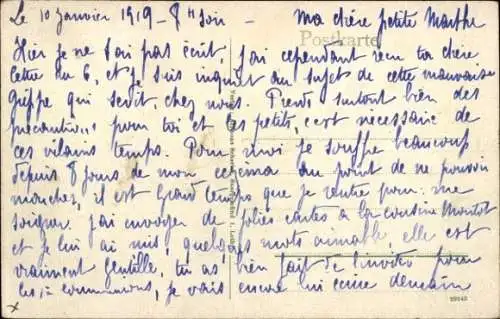 Le 10 Janvier 1919 - 8 h Soir - Ma chère petite Marthe
Postkarte
Hier je ne t'ai pas écrit, j'ai cependant reçu ta chère
lettre du 6, et je suis inquiet au sujet de cette mauvaise
grippe qui sévit chez nous. Prends surtout bien des
précautions pour toi et les petits, c'est nécessaire de
ces vilains temps. Pour moi je souffre beaucoup
depuis 8 jours de mon eczema au point de ne pouvoir
marcher, il est grand temps que je rentre pour me
soigner. J'ai envoyer de jolies cartes à la cousine
et je lui ai mis quelques mots aimable, elle est
vraiment gentille, tu as bien fait de l'inviter pour
les communions, je vais encore lui écrire demain